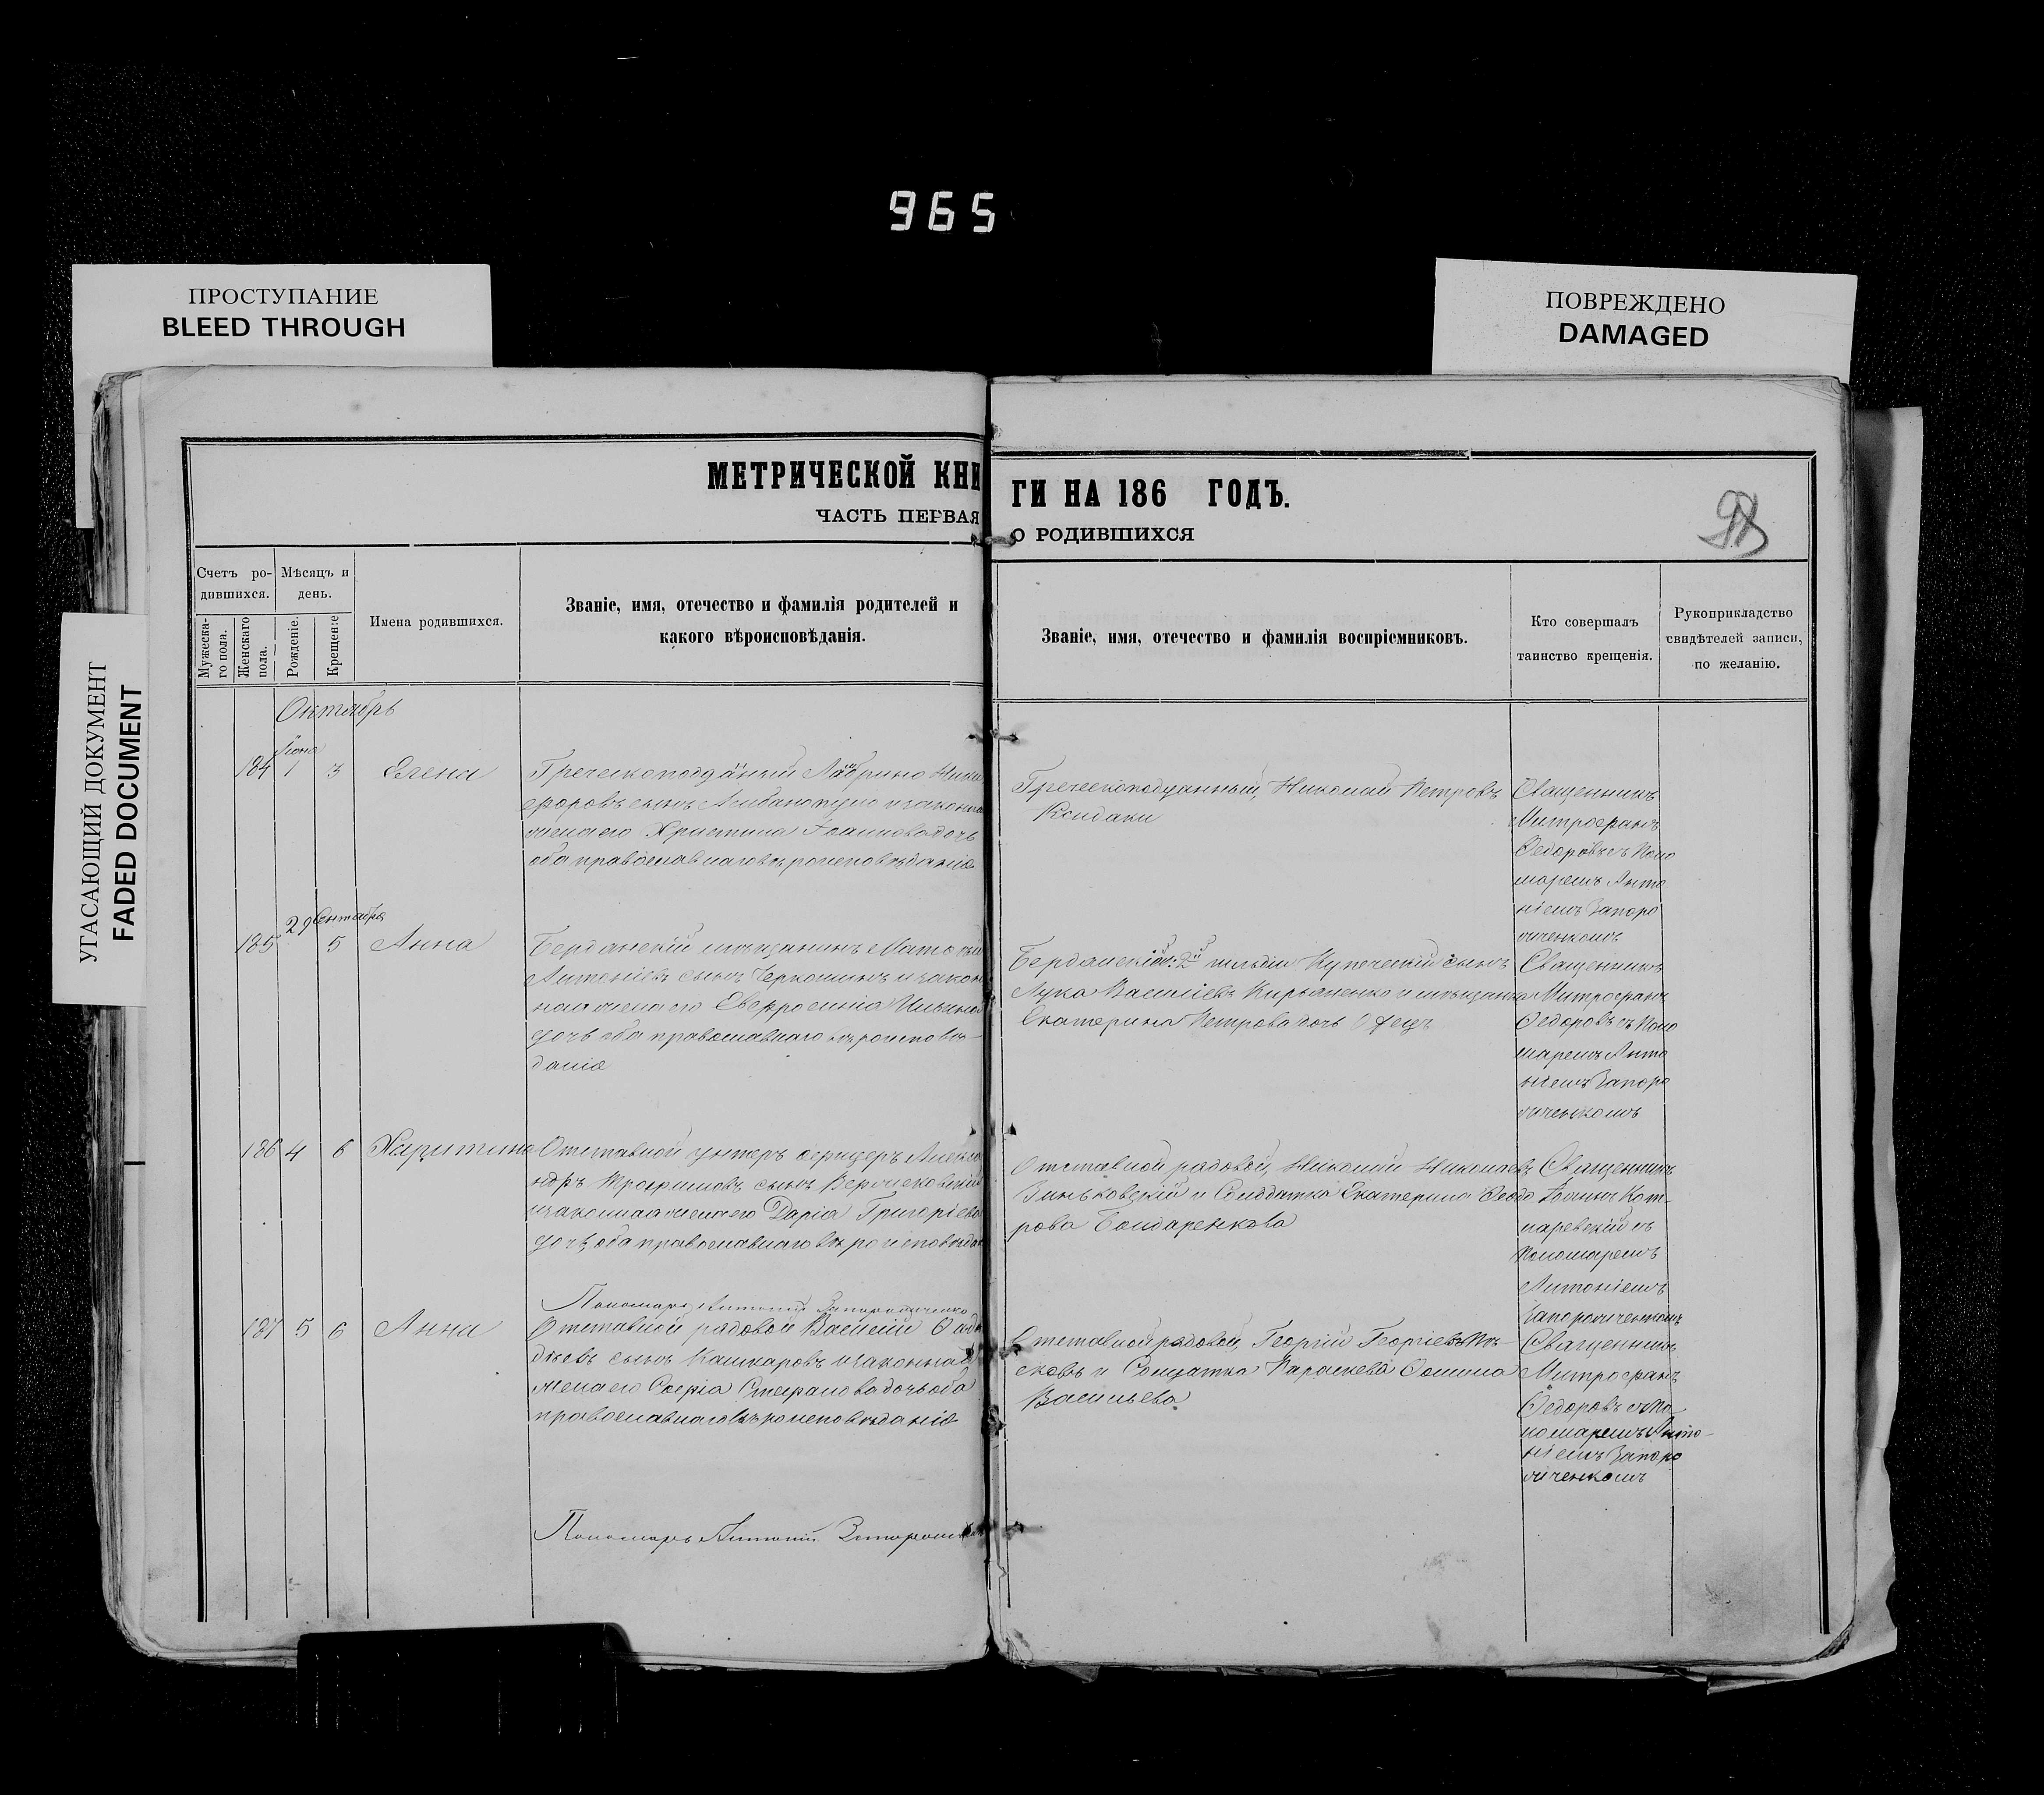 965
ПРОСТУПАНИЕ
BLEED THROUGH
ПОВРЕЖДЕНО
DAMAGED
УГАСАЮЩИЙ ДОКУМЕНТ
FADED DOCUMENT
МЕТРИЧЕСКОЙ КНИ
ЧАСТЬ ПЕРВАЯ
Счетъ ро-
дившихся.
Мужеска-
го пола.
Женскаго
пола.
Мѣсяцъ и
день.
Рожденіе.
Крещеніе
Имена родившихся.
Званіе, имя, отечество и фамилія родителей и
какого вѣроисповѣданія.
ГИ НА 186 ГОДЪ.
О РОДИВШИХСЯ
98
Званіе, имя, отечество и фамилія воспріемниковъ.
Кто совершалъ
таинство крещенія.
Рукоприкладство
свидѣтелей записи,
по желанію.
Октябрь
184 1 3 Елена
Греческоподданый Ники
форовъ сынъ и законна
жена его Христина дочь
оба православнаго вѣроисповѣданія
Греческоподданный, Николай Петровъ
Ксидаки
Священникъ
Митрофанъ
Федоровъ съ Поно
маремъ Анто
ніемъ Запоро
жченкомъ
185 29 Сентября 5 Анна
Бердянскій мѣщанинъ
Антоніевъ сынъ и закон
ная жена его Евфросинія Ильина
дочь оба православнаго вѣроисповѣ-
данія
Бердянскій 2й гильдіи Купеческій сынъ
Лука Василіевъ Кирьяненко и мѣщанка
Екатерина Петрова дочь
Священникъ
Митрофанъ
Федоровъ съ Поно
маремъ Анто
ніемъ Запоро
жченкомъ
186 4 6 Харитина
Отставной унтеръ офицеръ Алекса
ндръ Трофимовъ сынъ
и законная жена его Дарія Григоріева
дочь, оба православнаго вѣроисповѣдан
Отставной рядовой, Николай Николаевъ
Зиньковскій и Солдатка Екатерина Федо
рова Бондаренкова
Священникъ
Іоаннъ Кот-
ляревскій съ
Пономаремъ
Антоніемъ
Запорожченкомъ
Пономарь Антоній Запорожченко
187 5 6 Анна
Отставной рядовой Василій
сынъ Кашкаровъ и законная
жена его Софія Стефанова дочь оба
православнаго вѣроисповѣданія
Отставной рядовой, Георгій Георгіевъ
и Солдатка Параскева Фомина
Васильева.
Священникъ
Митрофанъ
Федоровъ съ По-
номаремъ Анто-
ніемъ Запоро
жченкомъ
Пономарь Антоній